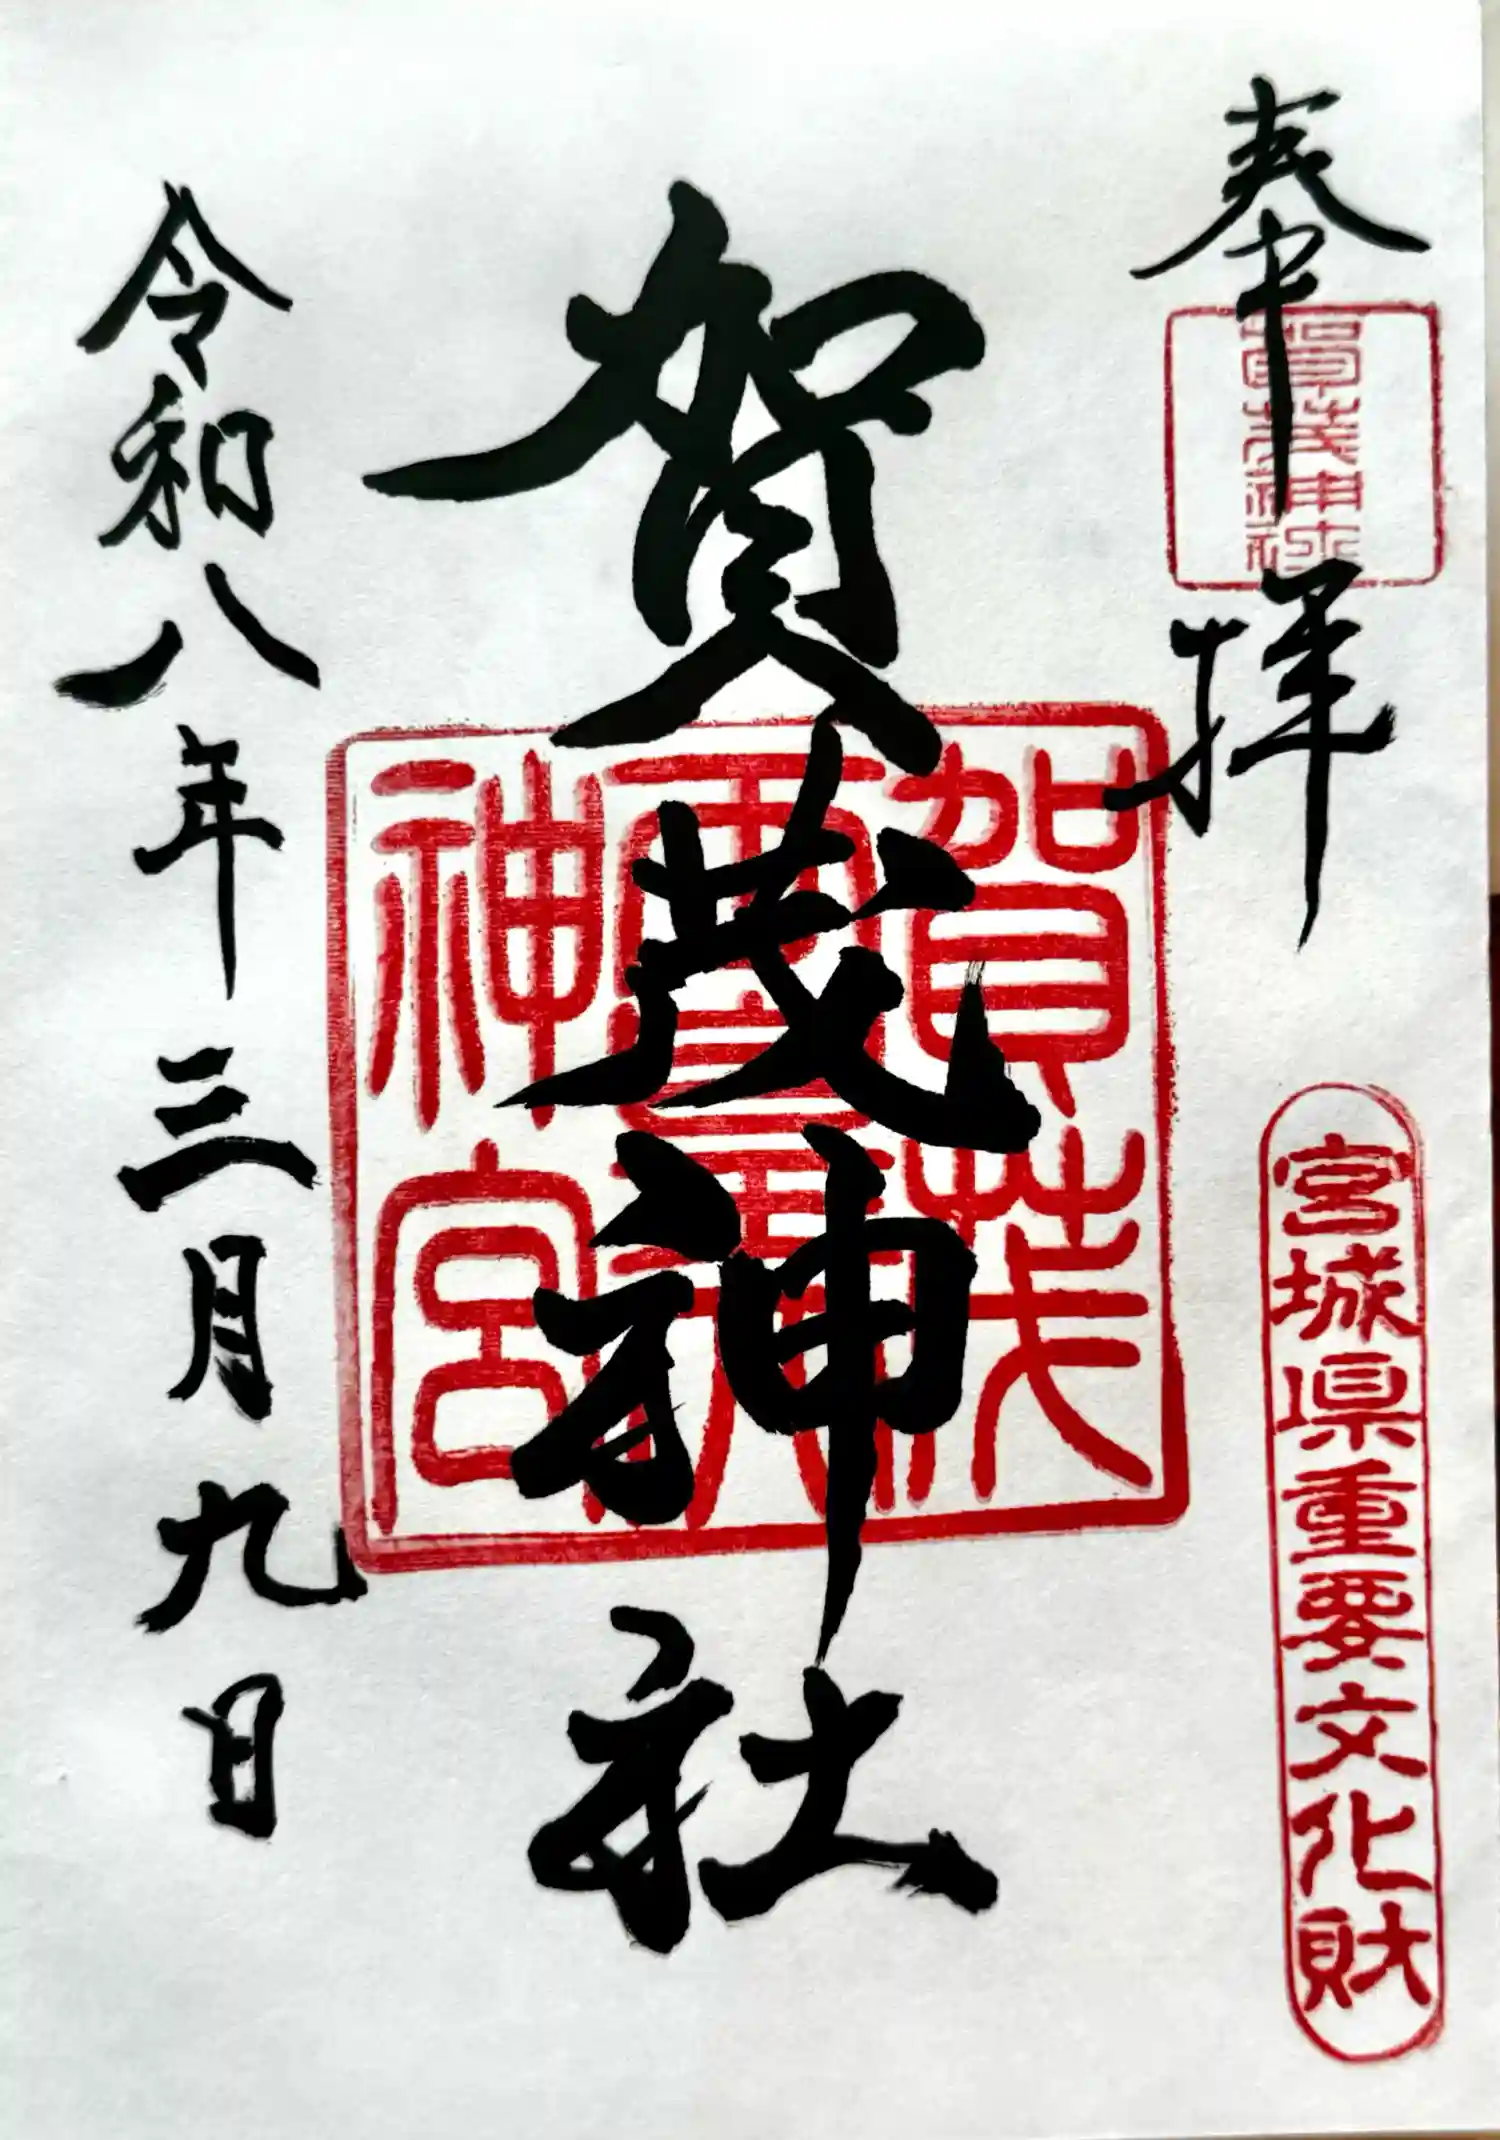 奉拝
賀茂神社
宮城県重要文化財
賀茂神社
令和八年三月九日